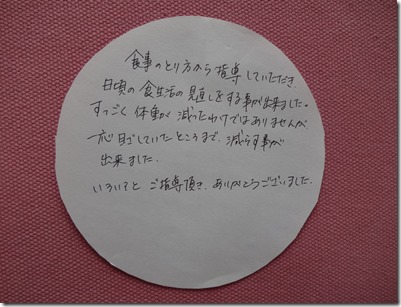 食事のとり方から指導していただき
日頃の食生活の見直しをする事が出来ました。
すっごく体重が減ったわけではありませんが
一応目ざしていたところまで、減らす事が
出来ました。
いろいろと ご指導頂き、ありがとうございました。